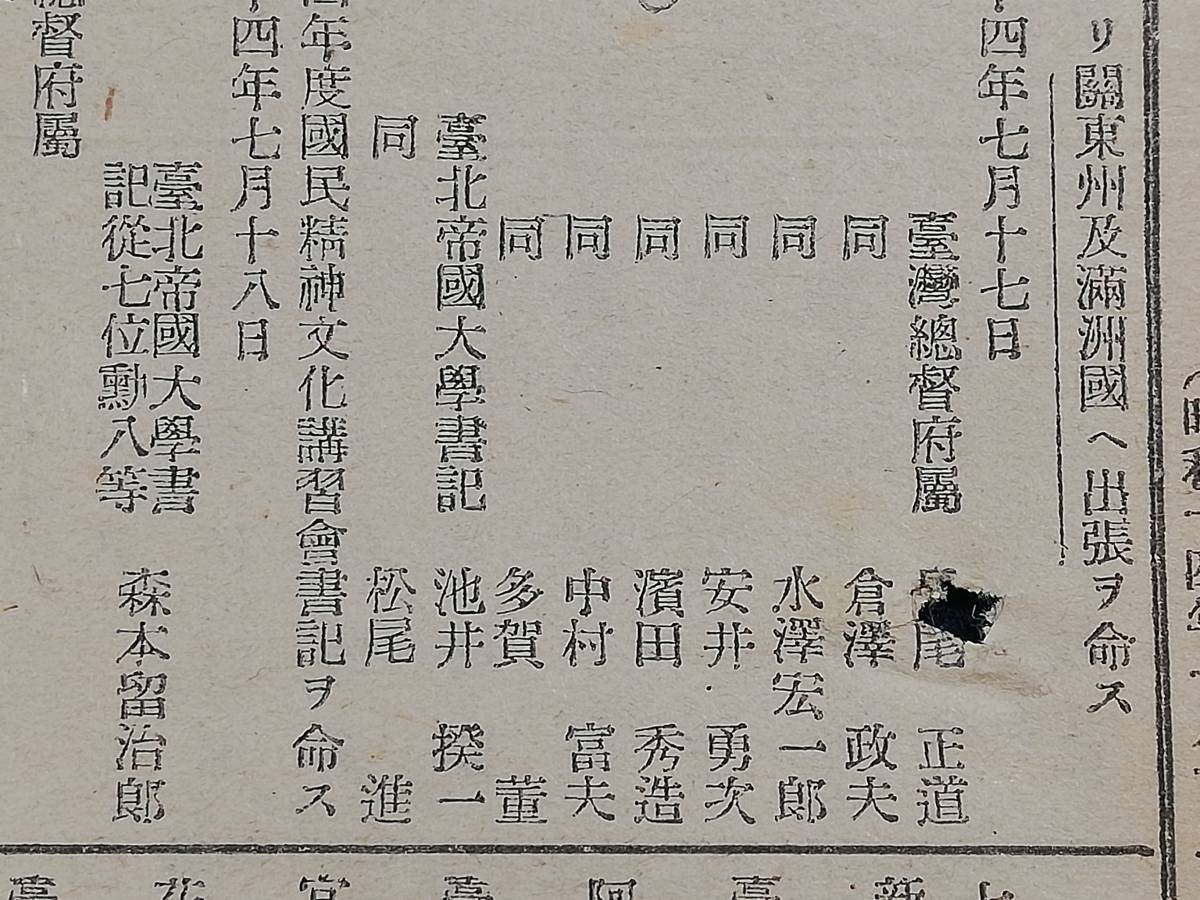 リ關東州及滿洲國ヘ出張ヲ命ス
四年七月十七日
臺灣總督府屬 尾 正道
同 倉澤 政夫
同 水澤宏一郎
同 安井 勇次
同 濱田 秀造
同 中村 富夫
同 多賀 董
臺北帝國大學書記 池井 揆一
同 松尾 進
年度國民精神文化講習會書記ヲ命ス
四年七月十八日
臺北帝國大學書
記從七位勳八等 森本留治郎
督府屬